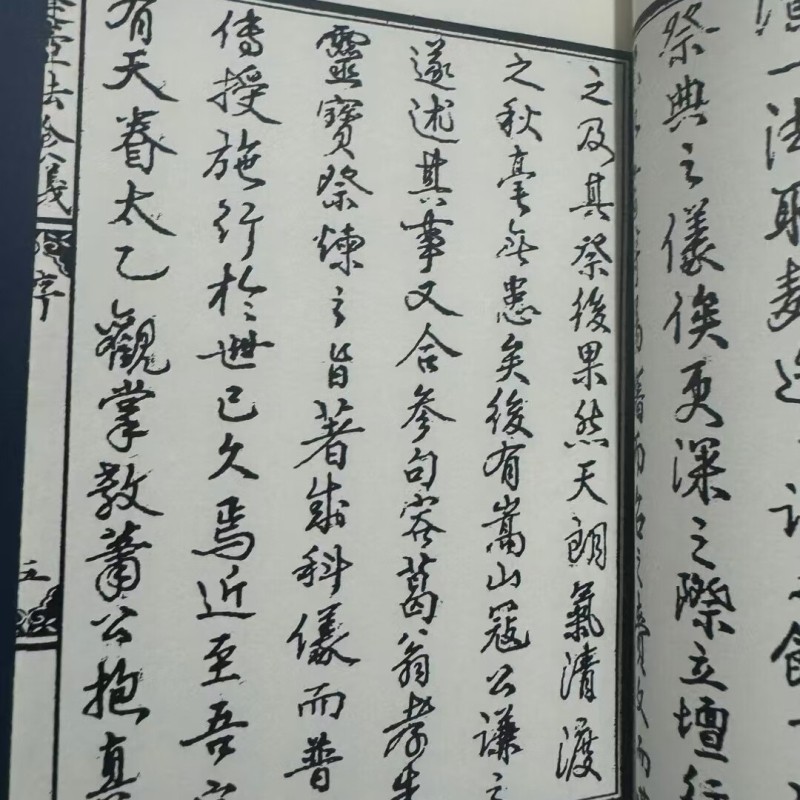 一法取
祭典之儀俟更深之際立壇行
之及其祭後果然天朗氣清渡
之秋毫無恙矣後有嵩山冦公謙之
遂述其事又合參句容葛翁孝先
靈寶祭煉之旨著成科儀而普
傳授施行於世已久焉近至吾
有天眷太乙觀掌教蕭公抱真
法食儀
序
五